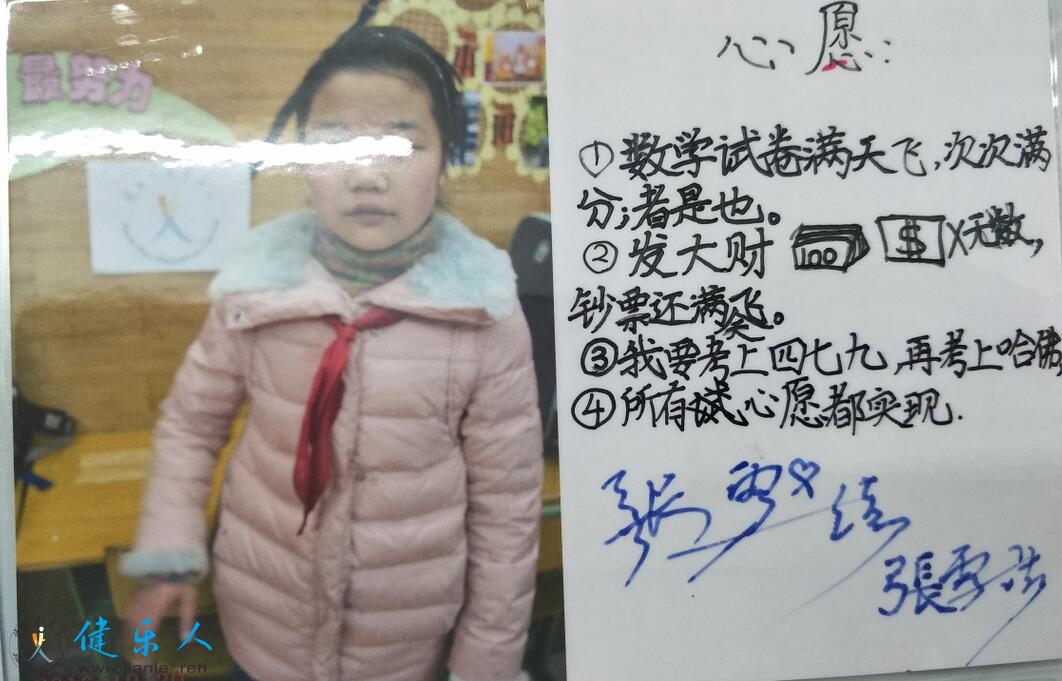 最努力
心愿:
①数学试卷满天飞,次次满
分;者是也。
②发大财 100 $ X无数,
钞票还满飞。
③我要考上四七九,再考上哈佛
④所有心愿都实现.
張雪
健乐人
www.jianle.ren